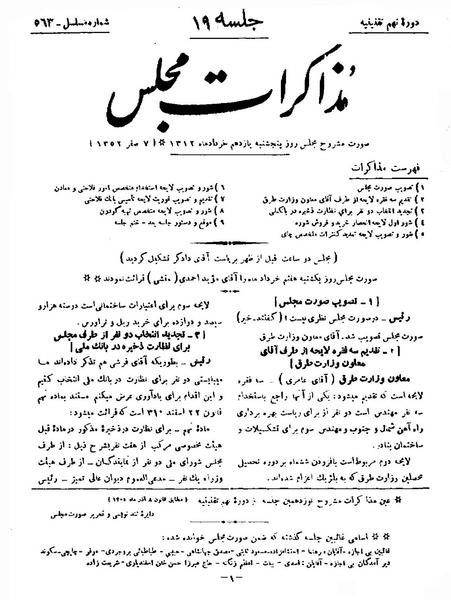 دورهٔ نهم تقنینیه
جلسه ۱۹
شماره مسلسل - ۵۶۳
مذاکرات مجلس
صورت مشروح مجلس روز پنجشنبه یازدهم خرداد ماه ۱۳۱۲ * (۷ صفر ۱۳۵۲)
فهرست مذاکرات
۱) تصویب صورت مجلس
۲) تقدیم سه فقره لایحه از طرف آقای معاون وزارت طرق
۳) تجدید انتخاب دو نفر برای نظارت ذخیره در بانک ملی
۴) شور اول لایحه انحصار خرید و فروش شوره
۵) شور و تصویب لایحه تمدید کنترات متخصص چای
۶) شور و تصویب لایحه استخدام متخصص امور فلاحتی و معادن
۷) تقدیم و تصویب فوریت لایحه تأسیس بانک فلاحتی
۸) شور و تصویب لایحه متخصص تهیه گودرون
۹) موقع و دستور جلسه بعد - ختم جلسه
(مجلس دو ساعت قبل از ظهر بریاست آقای دادگر تشکیل گردید)
صورت مجلس روز یکشنبه هفتم خرداد ماه را آقای مؤید احمدی (منشی) قرائت نمودند * *
[۱ - تصویب صورت مجلس]
رئیس - در صورت مجلس نظری نیست؟ (گفتند - خیر)
صورت مجلس تصویب شد. آقای معاون وزارت طرق
[۲ - تقدیم سه فقره لایحه از طرف آقای
معاون وزارت طرق]
معاون وزارت طرق (آقای عامری) - سه فقره
لایحه است که تقدیم میشود: یکی از آنها راجع باستخدام
سه نفر مهندس است دو نفر آنرا برای ریاست بهره برداری
راه آهن شمال و جنوب و مهندس سوم برای تشکیلات و
ساختمان بنادر.
لایحه دوم مربوط است بافزودن ششماه بر دوره تحصیل
محصلین وزارت طرق که به بلژیک اعزام شده‌اند.
لایحه سوم برای اعتبارات ساختمانی است دوسنه هزار و
سیصد و دوازده برای خرید ریل و تراورس.
[۳ - تجدید انتخاب دو نفر از طرف مجلس
برای نظارت ذخیره در بانک ملی]
رئیس - بطوریکه آقای فرشی هم تذکر داده‌اند ما
میبایستی دو نفر برای نظارت در بانک ملی انتخاب کنیم
و این اقدام برای یادآوری عرض میکنم مستند بماده نهم
قانون ۲۲ اسفند ۳۱۰ است که قرائت میشود:
ماده نهم - برای نظارت در ذخیره مذکور در مادهٔ قبل
هیئت مخصوصی مرکب از هفت نفر بشرح ذیل: از طرف
مجلس شورای ملی دو نفر از نمایندگان - از طرف هیئت
وزراء یک نفر - مدعی‌العموم دیوان عالی تمیز - رئیس
* عین مذاکرات مشروح نوزدهمین جلسه از دورهٔ نهم تقنینیه (مطابق قانون ۸ آذر ماه ۱۳۰۵)
دایرهٔ تند نویسی و تحریر صورت مجلس
* * اسامی غائبین جلسه گذشته که ضمن صورت مجلس خوانده شده:
غائبین بی اجازه - آقایان: رهنما - اسفندیاری - مسعود ثابتی - مصدق جهانشاهی - حبیبی - طباطبائی بروجردی - موقر - چایچی - سکوند
دیر آمدگان بی اجازه - آقایان: اسدی - بیات - اعظم زنگنه - حاج میرزا حسن خان اسفندیاری - شریعت زاده
-۱-